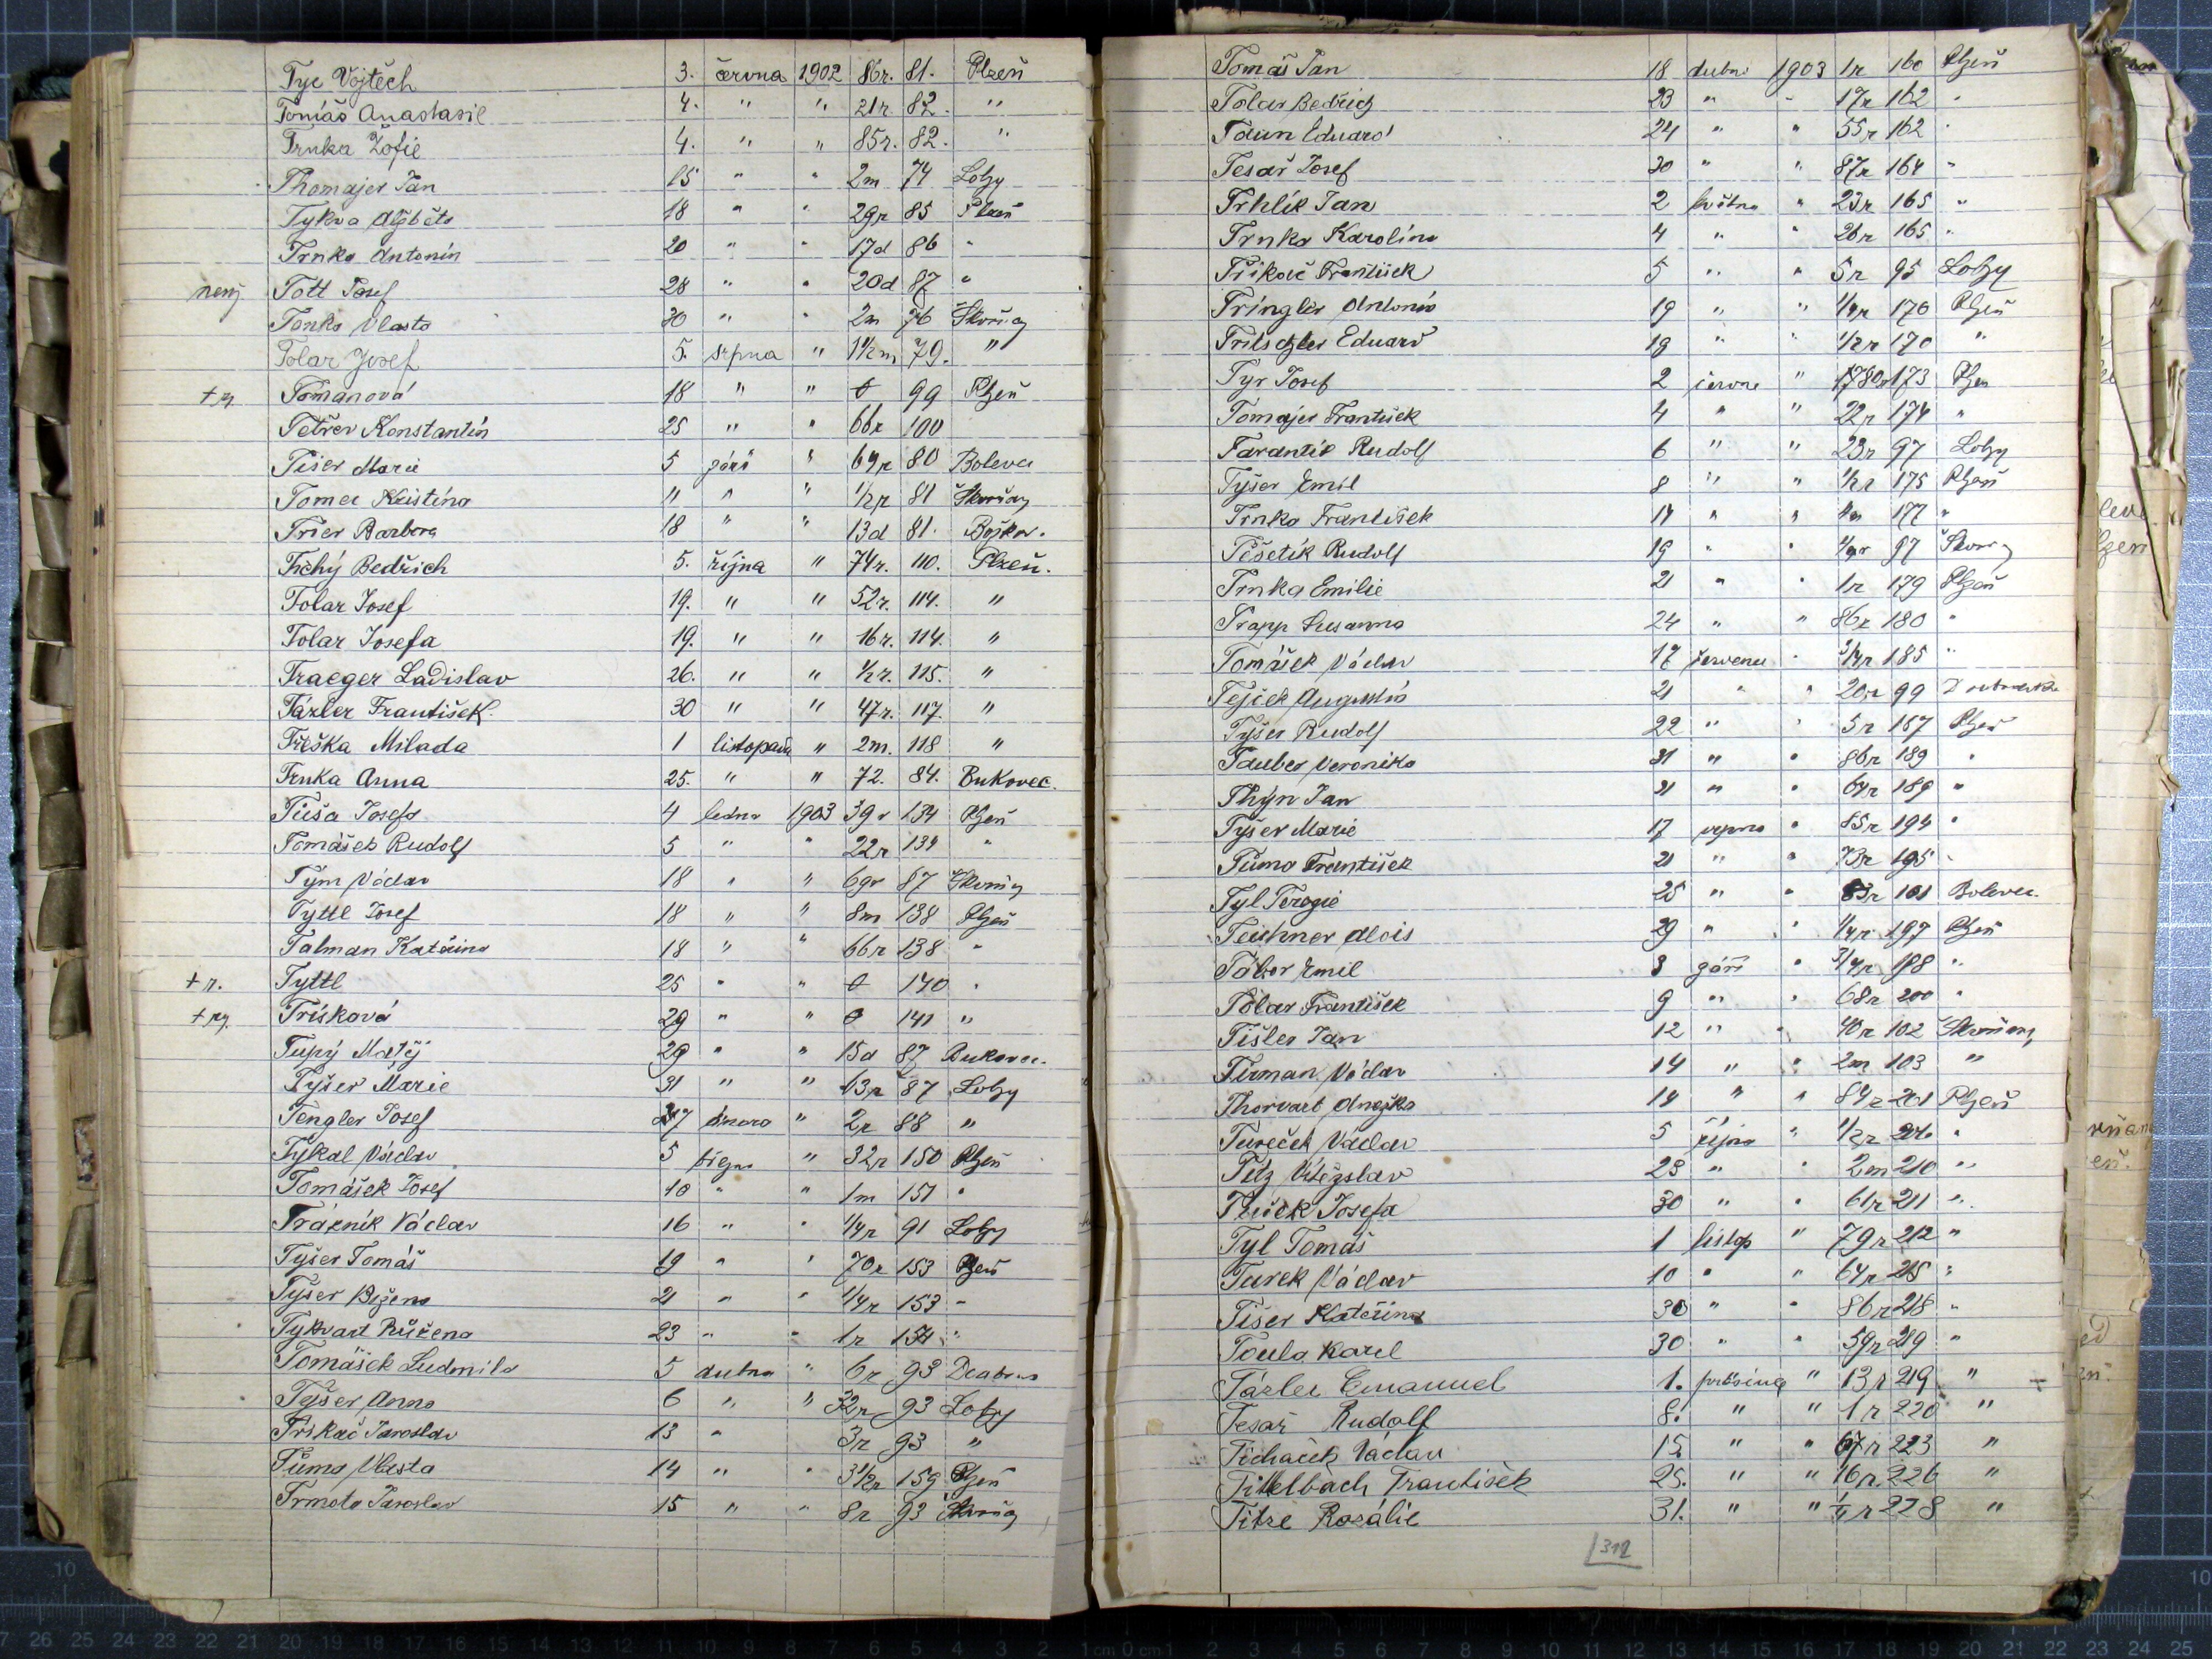 Tyc Vojtěch 3. června 1902 86r. 81. Plzeň
Tomáš Anastasie 4. " " 21r. 82. "
Trnka Žofie 4. " " 85r. 82. "
Thomajer Jan 15 " " 2m 74 Lobzy
Tykva Alžběta 18 " " 29r 85 Plzeň
Trnka Antonín 20 " " 17d 86 "
Tott Josef 28 " " 20d 87 "
Tonka Vlasta 30 " " 2m 76 Skvrňany
Tolar Josef 5. srpna " 1½m 79. "
Tomanová 18 " " 0 99 Plzeň
Tetřev Konstantin 25 " " 66r 100
Tišer Marie 5 září " 69r 80 Bolevec
Tomer Kristina 11 " " ½r 81 Skvrňany
Trier Barbora 18 " " 13d 81.
Tichý Bedřich 5. října " 74r. 110. Plzeň.
Tolar Josef 19. " " 52r. 114. "
Tolar Josefa 19. " " 16r. 114. "
Traeger Ladislav 26. " " ½r. 115. "
Tázler František 30 " " 47r. 117. "
Třeška Milada 1 listopadu " 2m. 118 "
Trnka Anna 25. " " 72. 84. Bukovec.
Tůša Josefa 4 ledna 1903 39r 134 Plzeň
Tomášek Rudolf 5 " " 22r 134 "
Tým Václav 18 " " 69r 87 Skvrňany
Tyttl Josef 18 " " 8m 138 Plzeň
Talman Kateřina 18 " " 66r 138 "
+ r. Tyttl 25 " " 0 140 "
Trísková 29 " " 0 141 "
Tupý Matěj 29 " " 15d 87 Bukovec.
Tyšer Marie 31 " " 63r 87 Lobzy
Tengler Josef 27 února " 2r 88 "
Tykal Václav 5 březn " 32r 150 Plzeň
Tomášek Josef 10 " " 1m 151 "
Trázník Václav 16 " " ¼r 91 Lobzy
Tyšer Tomáš 19 " " 70r 153 Plzeň
Tyšer Božena 21 " " ¼r 153 "
Tykvart Růžena 23 " " 1r 154 "
Tomášek Ludmila 5 dubna " 6r 93
Tyšer Anna 6 " " 32r 93 Lobzy
Třískač Jaroslav 13 " 3r 93 "
Tůma Vlasta 14 " " 3½r 159 Plzeň
Trmota Jaroslav 15 " " 8r 93 Skvrňany
Tomáš Jan 18 dubna 1903 1r 160 Plzeň
Tolar Bedřich 23 " " 17r 162 "
Taun Eduard 24 " " 55r 162 "
Tesař Josef 30 " " 87r 164 "
Trhlík Jan 2 května " 23r 165 "
Trnka Karolina 4 " " 26r 165 "
Třískač František 5 " " 5r 95 Lobzy
Tringler Antonín 19 " " ¼r 170 Plzeň
Tritschler Eduard 19 " " ½r 170 "
Tyr Josef 2 června " 80r 173 Plzeň
Tomajer František 4 " " 22r 174 "
Tarantík Rudolf 6 " " 23r 97 Lobzy
Tyšer Emil 8 " " ½r 175 Plzeň
Trnka František 14 " " 177 "
Těšetík Rudolf 19 " " ¼r 97
Trnka Emilie 21 " " 1r 179 Plzeň
Trapp Susanna 24 " " 86r 180 "
Tomášek Václav 17 července " ¾r 185 "
Tejček Augustin 21 " " 20r 99
Tyšer Rudolf 22 " " 5r 187 Plzeň
Tauber Veronika 31 " " 86r 189 "
Thýn Jan 31 " " 64r 189 "
Tyšer Marie 17 srpna " 85r 194 "
Tůma František 21 " " 73r 195 "
Tyl Terezie 25 " " 83r 101 Bolevec.
Teichner Alois 29 " " ¼r 197 Plzeň
Tábor Emil 3 září " ¾r 198 "
Tolar František 9 " " 68r 200 "
Tišler Jan 12 " " 40r 102 Skvrňany
Tirman Václav 14 " " 2m 103 "
Thorvart Anežka 14 " " 84r 201 Plzeň
Tureček Václav 5 října " ½r 206 "
Titz Vítězslav 28 " " 2m 210 "
Tluček Josefa 30 " " 61r 211 "
Tyl Tomáš 1 listop " 79r 212 "
Turek Václav 10 " " 64r 215 "
Tišer Kateřina 30 " " 86r 218 "
Toula Karel 30 " " 59r 219 "
Tázler Emanuel 1. prosince " 13r 219 "
Tesař Rudolf 8. " " 1r 220 "
Ticháček Václav 15. " " 67r 223 "
Tittelbach František 25. " " 16r. 226 "
Titze Rozálie 31. " " ¼r 228 "
312